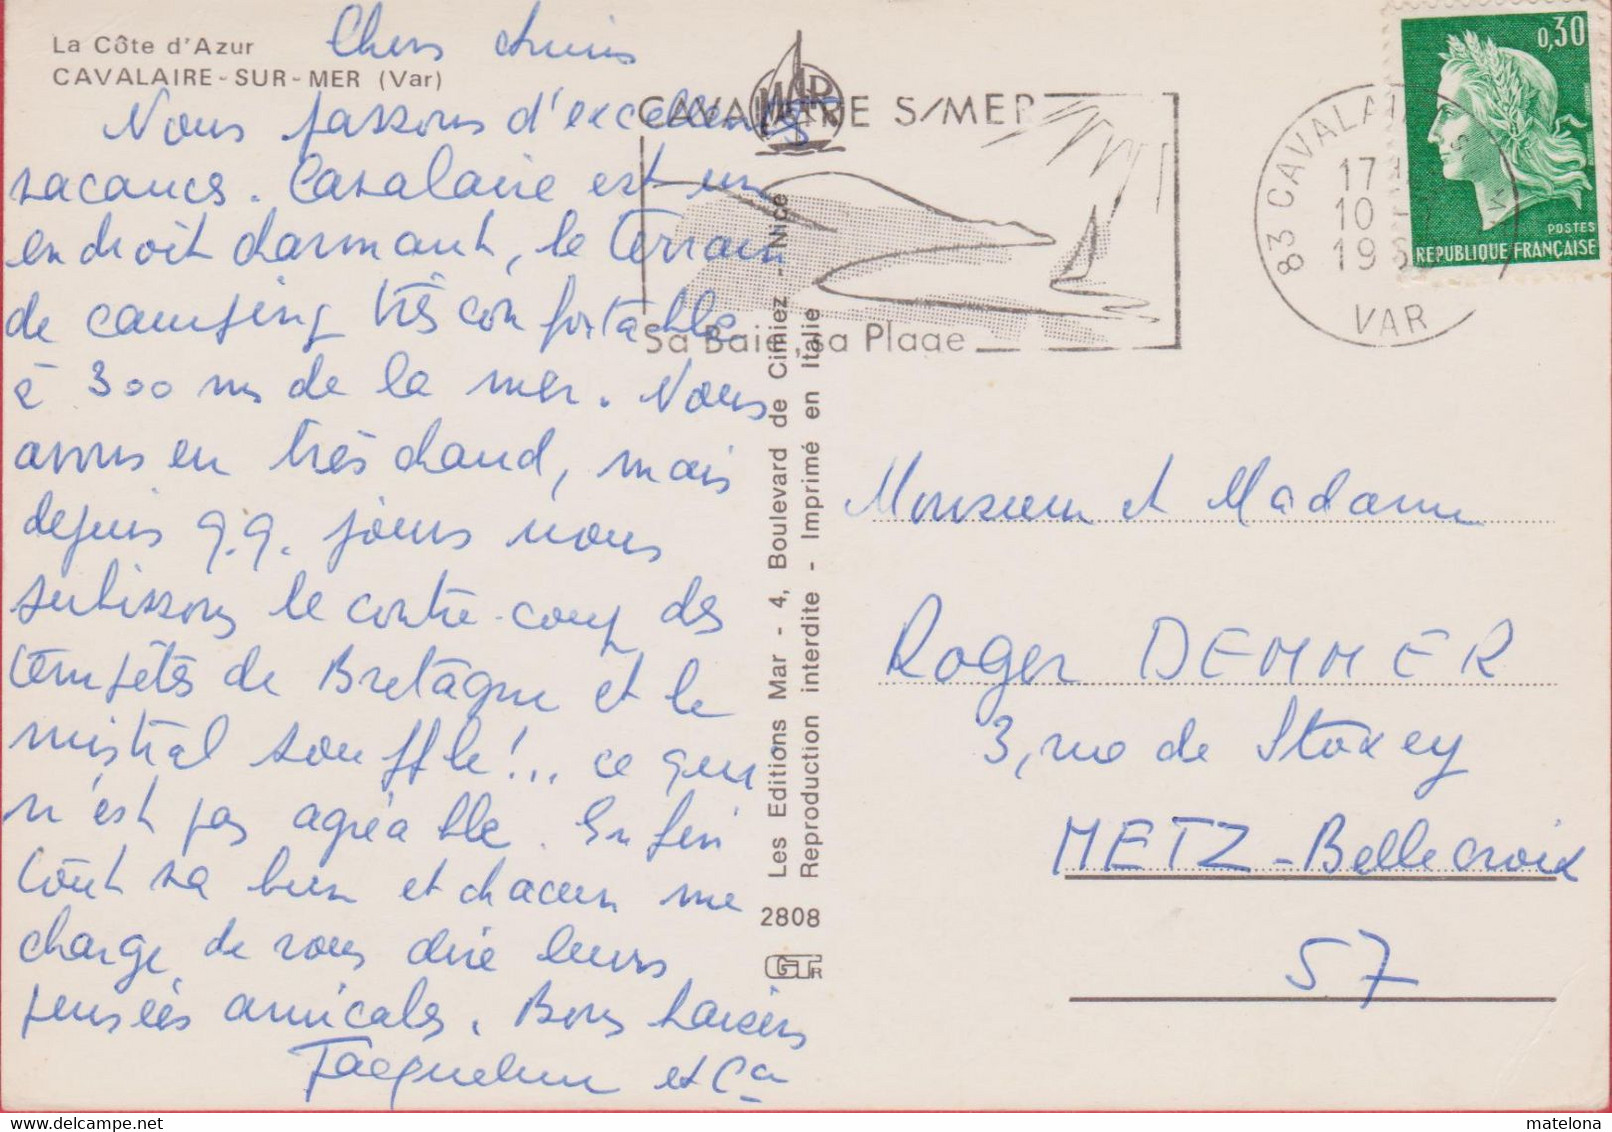 La Côte d'Azur
CAVALAIRE-SUR-MER (Var)
Chers Amis
Nous passons d'excellentes
vacances. Cavalaire est un
endroit charmant, le terrain
de camping très confortable
à 300 m de la mer. Nous
avons eu très chaud, mais
depuis q.q. jours nous
subissons le contre-coup des
tempêtes de Bretagne et le
mistral souffle!... ce qui
n'est pas agréable. Enfin
tout va bien et chacun me
charge de vous dire leurs
pensées amicales. Bons baisers
Jacqueline et Cie
MAR
Les Editions Mar - 4, Boulevard de Cimiez - Nice
Reproduction interdite - Imprimé en Italie
2808
GTR
CAVALAIRE S/MER
Sa Baie, sa Plage
83 CAVALAI
17
10
19
VAR
0,30
POSTES
REPUBLIQUE FRANÇAISE
Monsieur et Madame
Roger DEMMER
3, rue de Stoxey
METZ-Bellecroix
57
www.delcampe.net
matelona